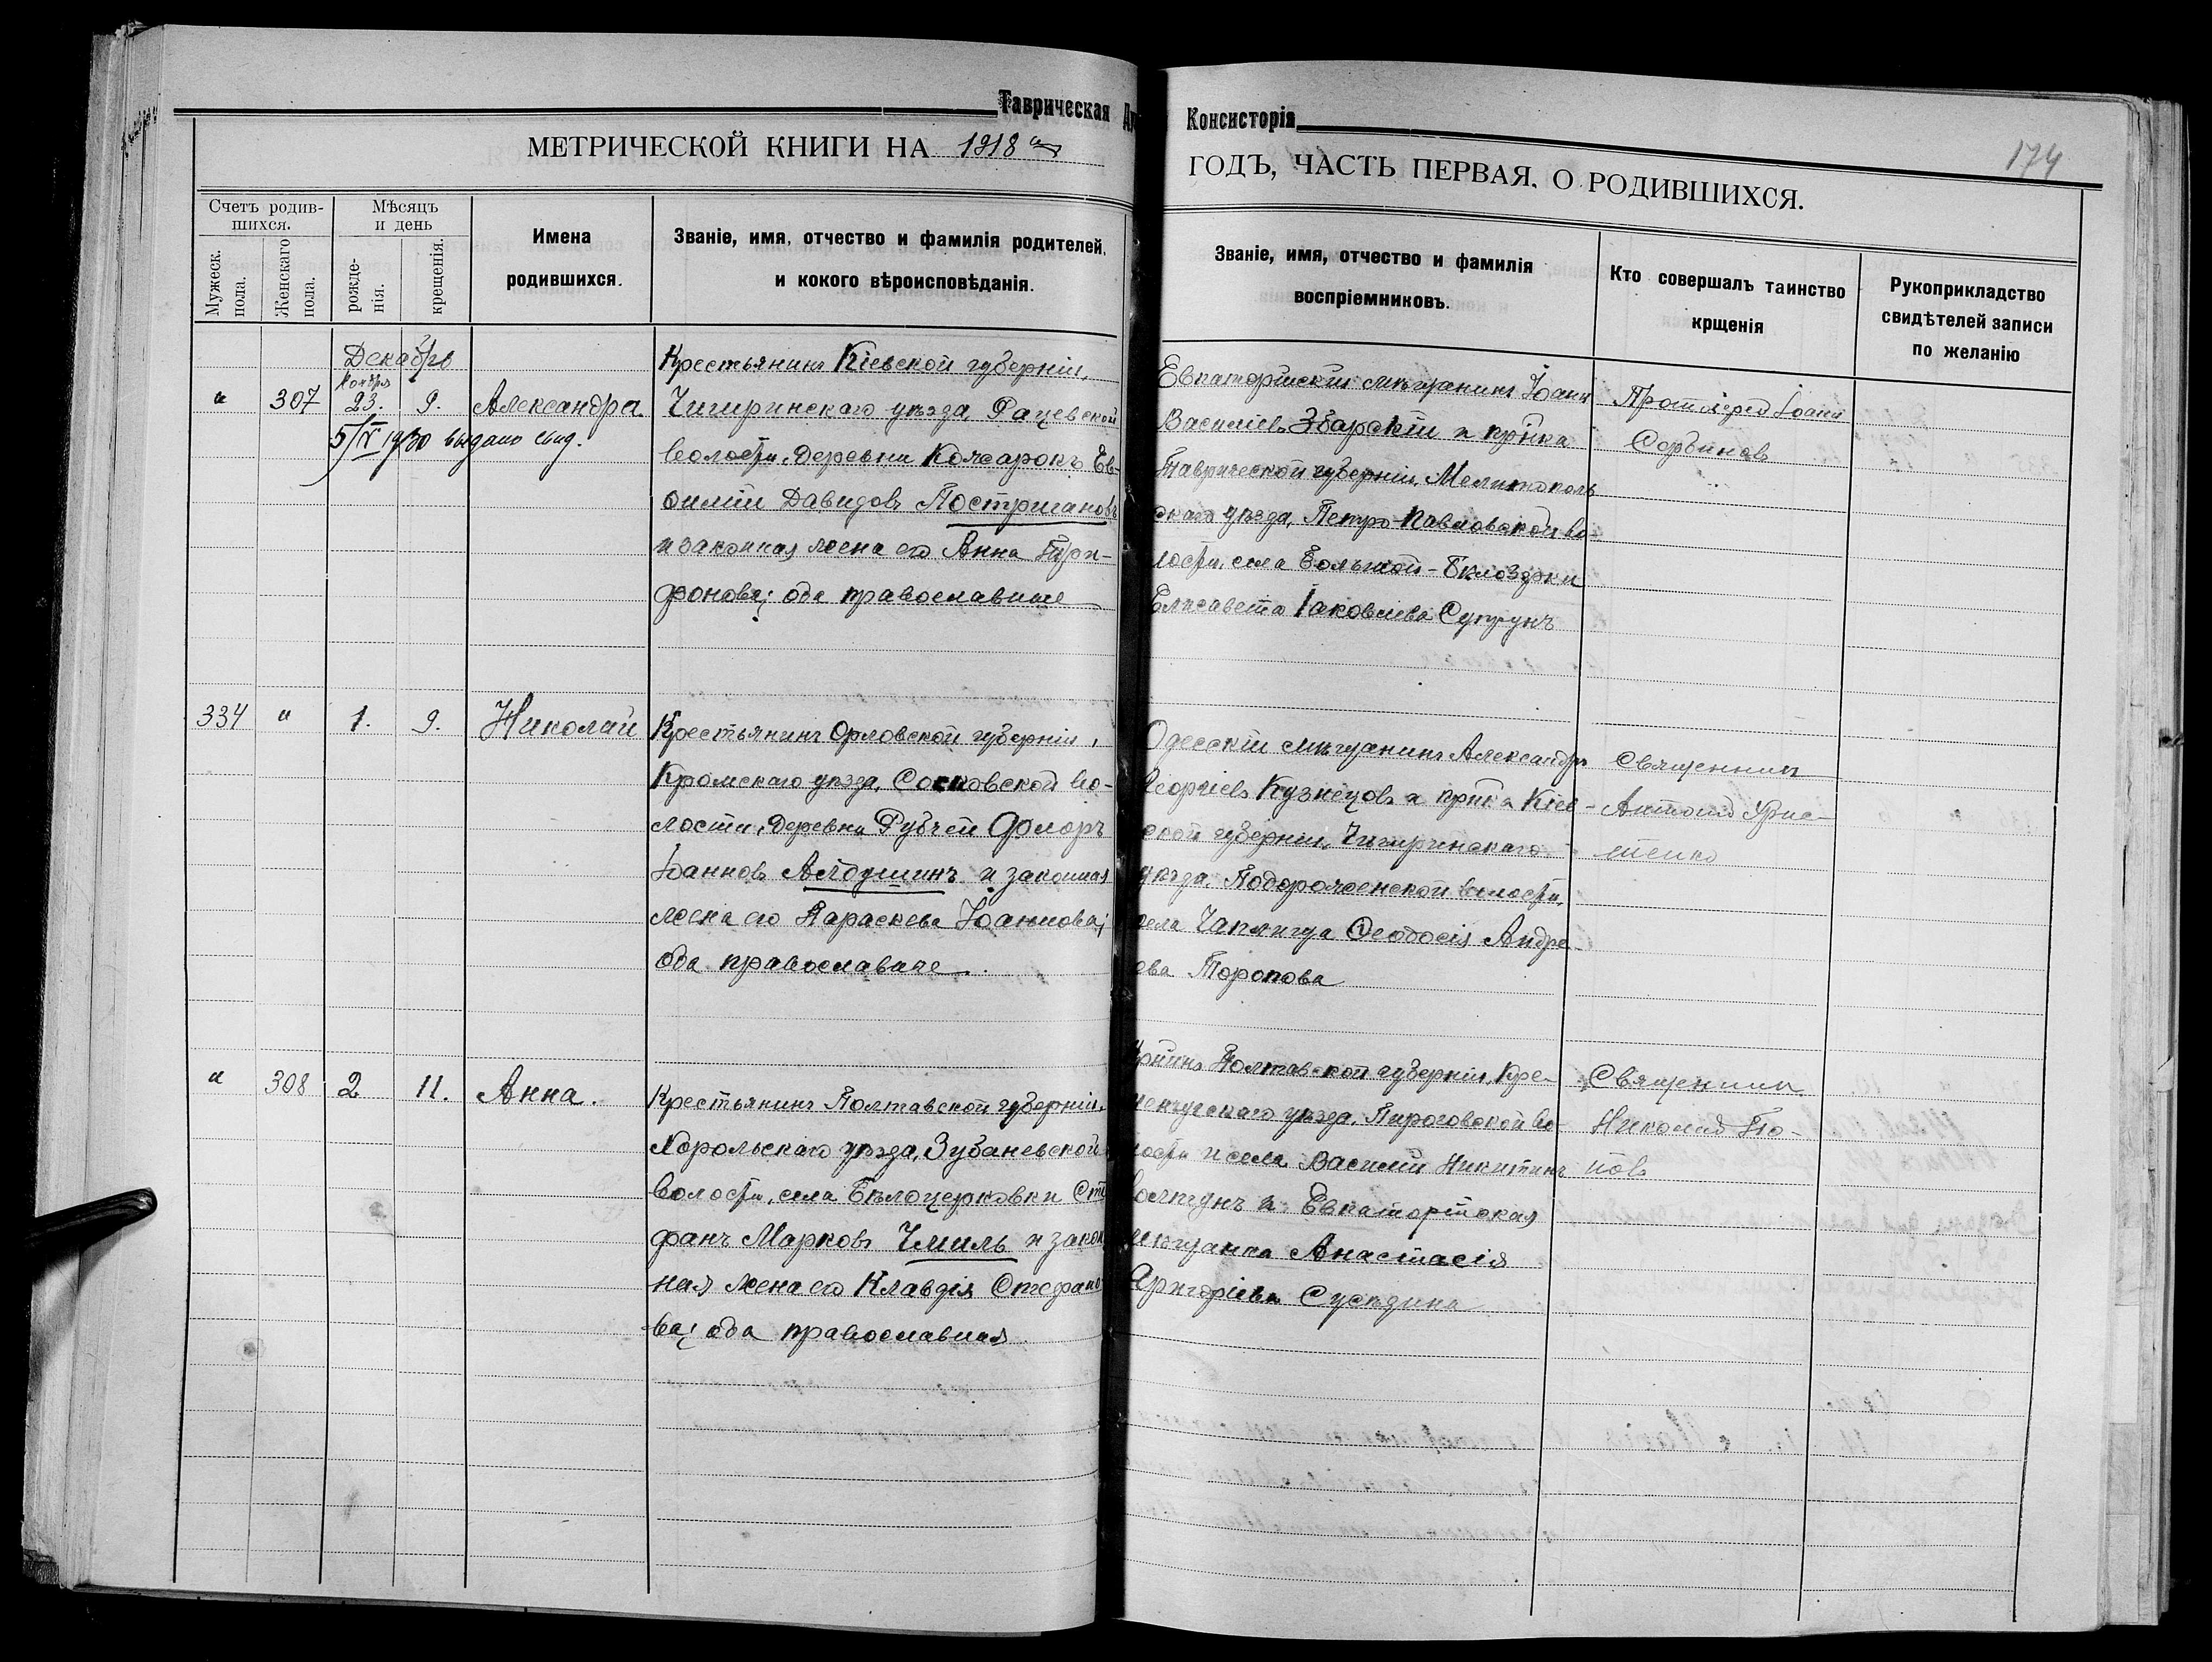 Таврическая
Консисторія
174
МЕТРИЧЕСКОЙ КНИГИ НА 1918
ГОДЪ, ЧАСТЬ ПЕРВАЯ, О РОДИВШИХСЯ.
Счетъ родив-
шихся.
Мужеск.
пола.
Женскаго
пола.
Мѣсяцъ
и день
рожде-
нія.
крещенія.
Имена
родившихся.
Званіе, имя, отчество и фамилія родителей,
и кокого вѣроисповѣданія.
Званіе, имя, отчество и фамилія
воспріемниковъ.
Кто совершалъ таинство
крщенія
Рукоприкладство
свидѣтелей записи
по желанію
Декабрь
Ноябрь
" 307 23. 9. Александра
5/V 1930 выдано свид.
Крестьянинъ Кіевской губерніи,
Чигиринскаго уѣзда, Рацевской
волости, деревни Кожарокъ Ев-
фимій Давидовъ Постригановъ
и законная жена его Анна Три-
фонова; оба православные
Евпаторійскій мѣщанинъ Іоаннъ
Василіевъ Збарскій и кр-нка
Таврической губерніи, Мелитополь
скаго уѣзда, Петро-Павловской во-
лости, села Большой-Бѣлозерки
Елисавета Іаковлева Супрунъ
Протоіерей Іоаннъ
Сербиновъ
334 " 1. 9. Николай
Крестьянинъ Орловской губерніи,
Кромскаго уѣзда, Сосковской во-
лости, деревни Рубчей Флоръ
Іоанновъ Алдошинъ и законная
жена его Параскева Іоаннова;
оба православные
Одесскій мѣщанинъ Александръ
Георгіевъ Кузнецовъ и кр-нка Кіев-
ской губерніи, Чигиринскаго
уѣзда, Подорожненской волости,
села Чаплища Ѳеодосія Андре-
ева Торопова
Священникъ
Антоній
" 308 2 11. Анна.
Крестьянинъ Полтавской губерніи,
Хорольскаго уѣзда, Зубаневской
волости, села Бѣлоцерковки Сте
фанъ Марковъ Чмиль и закон
ная жена его Клавдія Стефано
ва; оба православная
Кр-нинъ Полтавской губерніи, Кре-
менчугскаго уѣзда, Пироговской во-
лости и села Василій Никитинъ
Волтунъ и Евпаторійская
мѣщанка Анастасія
Григоріева Сусѣдина
Священникъ
Николай По-
повъ